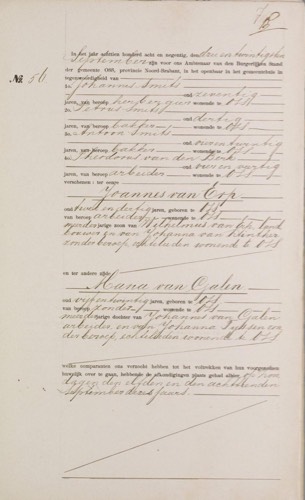 In het jaar achttien honderd acht en negentig, den
September zijn voor ons Ambtenaar van den Burgerlijken Stand
der gemeente OSS, provincie Noord-Brabant, in het openbaar in het gemeentehuis in
tegenwoordigheid van
No. 56
1o. Johannes Smits
oud zeventig
jaren, van beroep herbergier wonende te Oss
2o. Petrus Smits
oud
jaren, van beroep bakker wonende te Oss
3o. Antoon Smits
oud
jaren, van beroep bakker wonende te Oss
4o. Theodorus van den Berk
oud vier en veertig
jaren, van beroep arbeider wonende te Oss
verschenen: ter eenre
Joannes van Erp
oud twee en dertig jaren, geboren te Oss
van beroep arbeider wonende te Oss
meerderjarige zoon van Wilhelmus van Erp, land
bouwer en van Johanna van
zonder beroep echtelieden wonende te Oss
en ter andere zijde
Maria van Galen
oud vijf en twintig jaren, geboren te Oss
van beroep zonder wonende te Oss
meerderjarige dochter van Johannes van Galen
arbeider, en van Johanna zon
der beroep, echtelieden wonende te Oss
welke comparanten ons verzocht hebben tot het voltrekken van hun voorgenomen
huwelijk over te gaan, hebbende de afkondigingen plaats gehad alhier op zon
dagen den elfden en den achttienden
September dezes jaars.